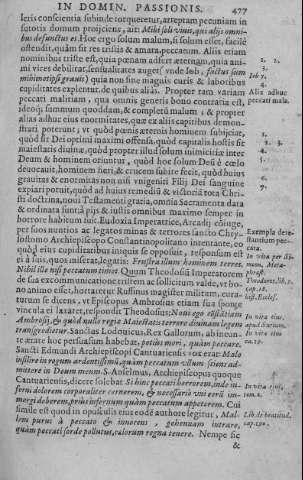 IN DOMIN. PASSIONIS. 477
leris conscientia subinde torqueretur, arreptam pecuniam in
totoris domum projiciens, ait: Mihi soli vivit, qui aliis omni-
bus defunctus est. Hoc ergo solum malum, si solum esset, facilè
ostendi, quàm sit res tristis & amara, peccatum. Aliis etiam
nominibus triste est, quia pœnam adfert æternam, quia ani-
mi vires debilitat, sensualitates auget (unde Iob, factus sum
mihimetipsi gravis) qua non sine magnis curis & laboribus
cupiditates explentur, de quibus aliàs. Propter tam variam
peccati malitiam, qua omnis generis bono contraria est,
summum quoddam, & completū malum; & propter
alias adhuc ejus enormitates, quæ ex aliis capitibus demon-
strari poterunt; vt quòd pœnis æternis hominem subjiciat,
quòd sit Dei optimi maximi offensa, quòd capitalis hostis sit
maiestatis divinæ, quòd propter illud solum inimicitiæ inter
Deum & hominem oriuntur, quòd hoc solum Deū è cœlo
deuocauit, hominem fieri, & crucem subire fecit, quòd huius
grauitas & enormitas non nisi vnigeniti Filij Dei sanguine
expiari potuit, quòd ad huius remediū & victoriā tota Chri-
sti doctrina, noui Testamenti gratia, omnia Sacramenta data
& ordinata sunt: à pijs & iustis omnibus maximo semper in
horrore habitum fuit. Eudoxia Imperatrice, Arcadij coniuge,
per suos nuntios ac legatos minas & terrores sancto Chry-
sostomo Archiepiscopo Constantinopolitano intentante, eo
quòd ejus cupiditatibus iniquis se opposuisset, responsum est
ei à suis, quos miserat, legatis: Frustra illum hominem terres.
Nihil ille nisi peccatum timet. Quum Theodosiū Imperatorem
de sua excommunicatione tristem ac sollicitum valde, vt bo-
no animo esset, hortaretur Ruffinus magister militum, cura-
turum se dicens, vt Episcopus Ambrosius etiam sua sponge
vincula ei laxaret, respondit Theodosius: Noui ego
Ambrosij, & quòd nulla regiæ Maiestatis terrore diuinam legem
transgredietur. Sanctus Lodouicus, Rex Gallorum, ab ineun-
te ætate hoc persuasum habebat, potius mori, quàm peccare.
Sancti Edmundi Archiepiscopi Cantuariensis vox erat: Malo
insilire in rogum ardentissimū, quàm peccatum vllum sciens ad-
mittere in Deum meum. S. Anselmus, Archiepiscopus quoque
Cantuariensis, dicere solebat: Si hinc peccati horrorem, inde in-
ferni dolorem corporaliter cernerem, & necessariò vni eorū im-
mergi deberem, prius infernum quàm peccatum appeterem. Cui
simile est quod in opusculis eius eodē authore legitur, Mal-
lem purus à peccato & innocens, gehennam intrare,
quàm peccati sorde pollutus, cælorum regna tenere. Nempe sic
&
1.
2.
3.
Iob 7.
4.
Alia adhuc
peccati mala.
1. 2.
3.
4.
5.
6.
7.
Exempla dete-
stantium pec-
cata.
Theodoret. lib. 5.
cap. 18.
hist. Eccles.
In vita eius
apud Surium.
In vita eius
In vita eius,
Lib. de beatitud.
cap. 190.